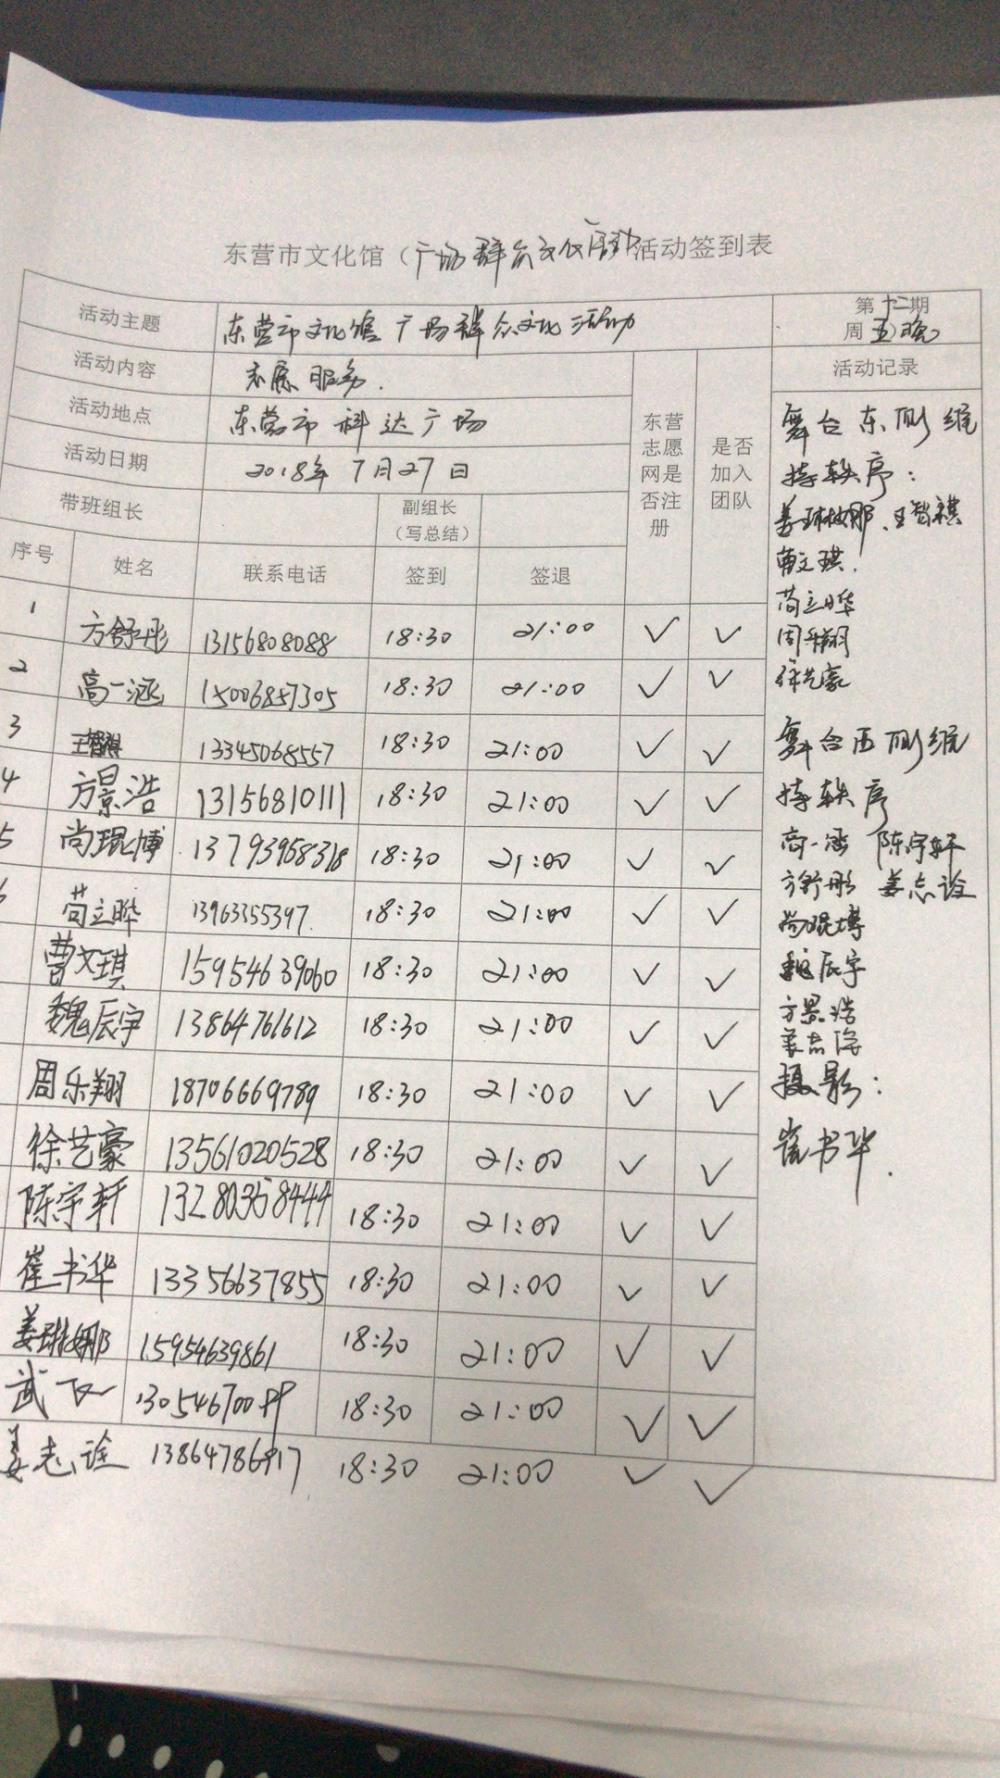 东营市文化馆（广场群众文化活动活动签到表
活动主题 东营市文化馆广场群众文化活动 第十二期
周五晚
活动内容 志愿服务. 活动记录
活动地点 东营市科达广场
活动日期 2018年7月27日
带班组长 副组长（写总结） 东营志愿网是否注册 是否加入团队
序号 姓名 联系电话 签到 签退
1 方舒彤 13156808088 18:30 21:00 ✓ ✓
2 高一涵 15006857305 18:30 21:00 ✓ ✓
3 王智祺 13345068557 18:30 21:00 ✓ ✓
4 方景浩 13156810111 18:30 21:00 ✓ ✓
5 尚琨博 13793958318 18:30 21:00 ✓ ✓
6 苘立晔 13963355397. 18:30 21:00 ✓ ✓
曹文琪 15954639060 18:30 21:00 ✓ ✓
魏辰宇 13864761612 18:30 21:00 ✓ ✓
周乐翔 18706669789 18:30 21:00 ✓ ✓
徐艺豪 13561020528 18:30 21:00 ✓ ✓
陈宇轩 13280358444 18:30 21:00 ✓ ✓
崔书华 13356637855 18:30 21:00 ✓ ✓
姜琳娜 15954639861 18:30 21:00 ✓ ✓
武 18:30 21:00 ✓ ✓
姜志诠 13864786917 18:30 21:00 ✓ ✓
舞台东侧维
持秩序：
姜琳娜、王智祺
曹文琪.
苘立晔
周乐翔
徐艺豪
舞台西侧维
持秩序
高一涵 陈宇轩
方舒彤 姜志诠
尚琨博
魏辰宇
方景浩
摄影：
崔书华.